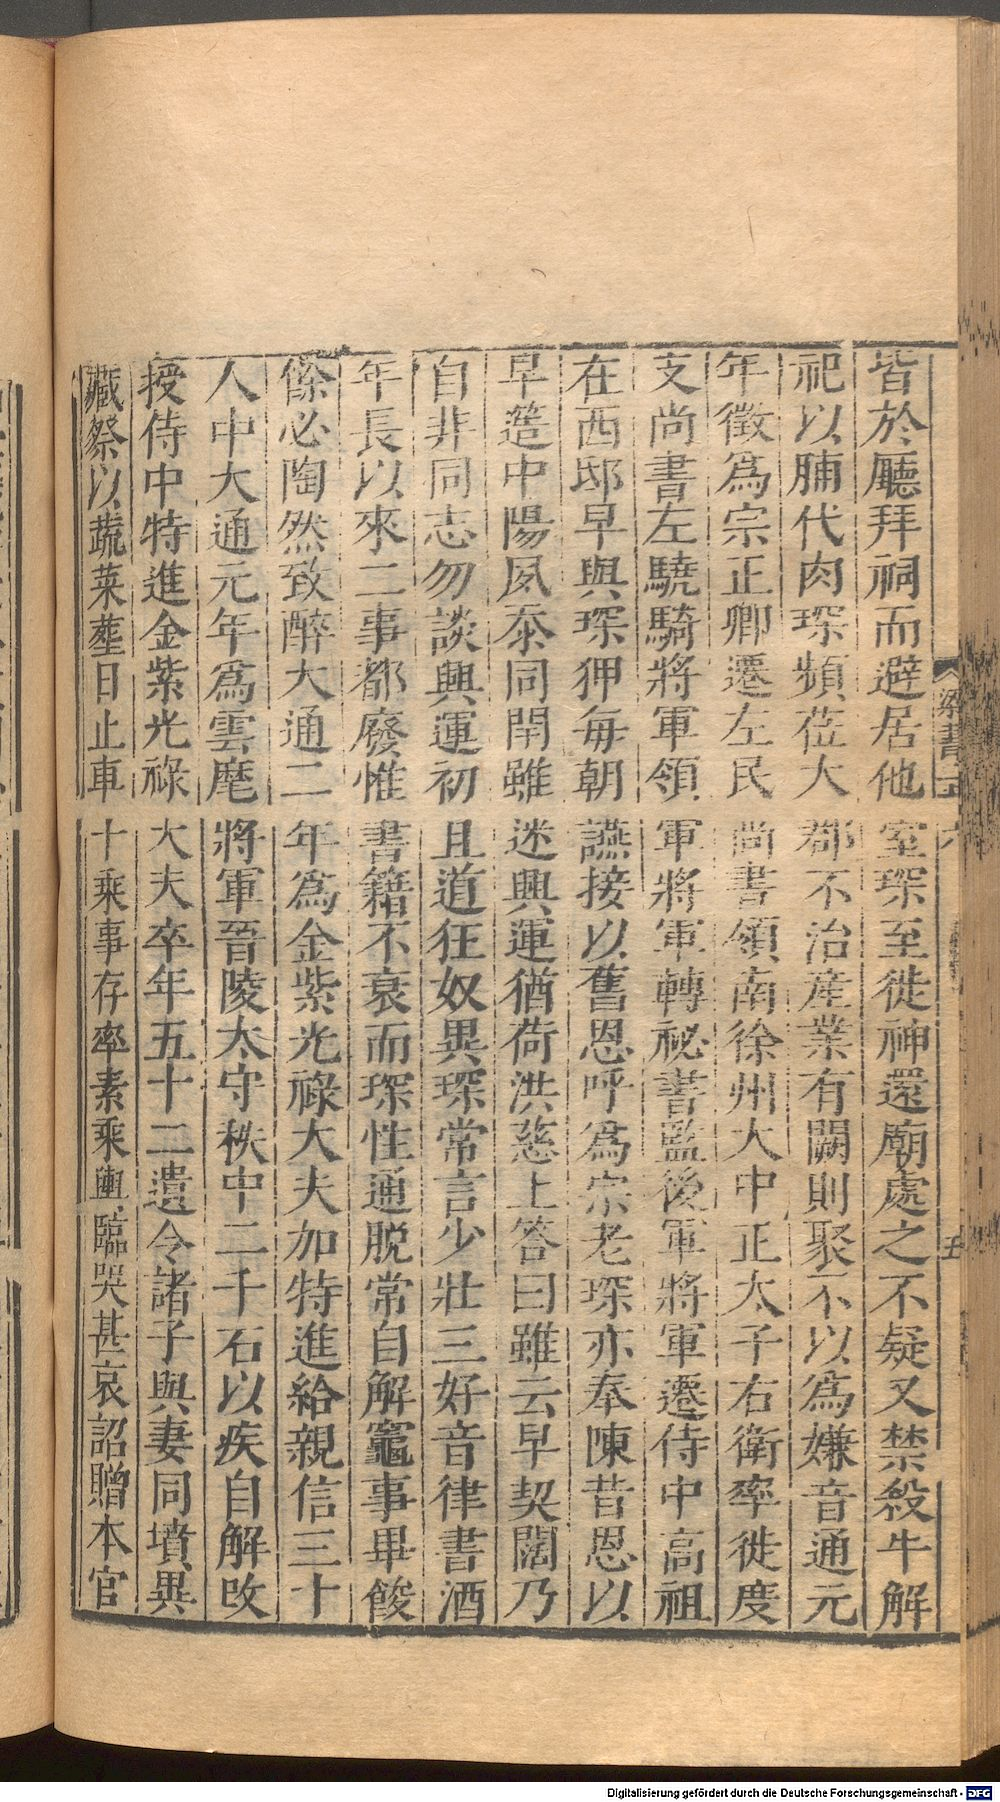 皆於廳拜祠而避居他室琛至徙神還廟處之不疑又禁殺牛解
祀以脯代肉琛頻莅大郡不治産業有闕則聚不以爲嫌音通元
年徵爲宗正卿遷左民尚書領南徐州大中正太子右衛率徙度
支尚書左驍騎將軍領軍將軍轉祕書監後軍將軍遷侍中高祖
在西邸早與琛狎每朝讌接以舊恩呼爲宗老琛亦奉陳昔恩以
早簉中陽夙忝同閈雖迷興運猶荷洪慈上答曰雖云早契闊乃
自非同志勿談興運初且道狂奴異琛常言少壯三好音律書酒
年長以來二事都廢惟書籍不衰而琛性通脱常自解竈事畢餕
餘必陶然致醉大通二年爲金紫光祿大夫加特進給親信三十
人中大通元年爲雲麾將軍晉陵太守秩中二千石以疾自解改
授侍中特進金紫光祿大夫卒年五十二遺令諸子與妻同墳異
藏祭以蔬菜葬日止車十乘事存率素乘輿臨哭甚哀詔贈本官
梁書
五
Digitalisierung gefördert durch die Deutsche Forschungsgemeinschaft - DFG